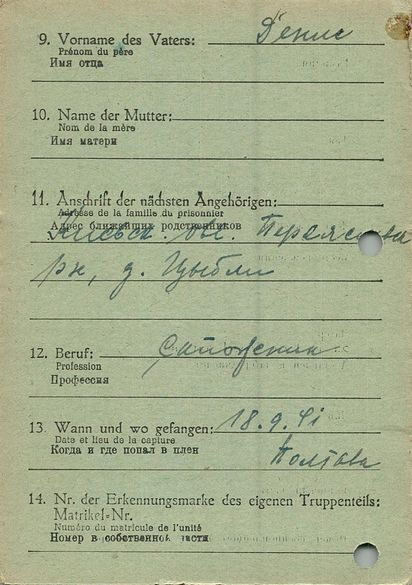 9. Vorname des Vaters: Денис
Prénom du père
Имя отца
10. Name der Mutter:
Nom de la mère
Имя матери
11. Anschrift der nächsten Angehörigen:
Adresse de la famille du prisonnier
Адрес ближайших родственников
Киевск. обл. Переяслав
рн, д. Цыбли
12. Beruf: Сапожник
Profession
Профессия
13. Wann und wo gefangen: 18.9.41
Date et lieu de la capture
Когда и где попал в плен
Полтава
14. Nr. der Erkennungsmarke des eigenen Truppenteils:
Matrikel-Nr.
Numéro du matricule de l'unité
Номер в собственной части